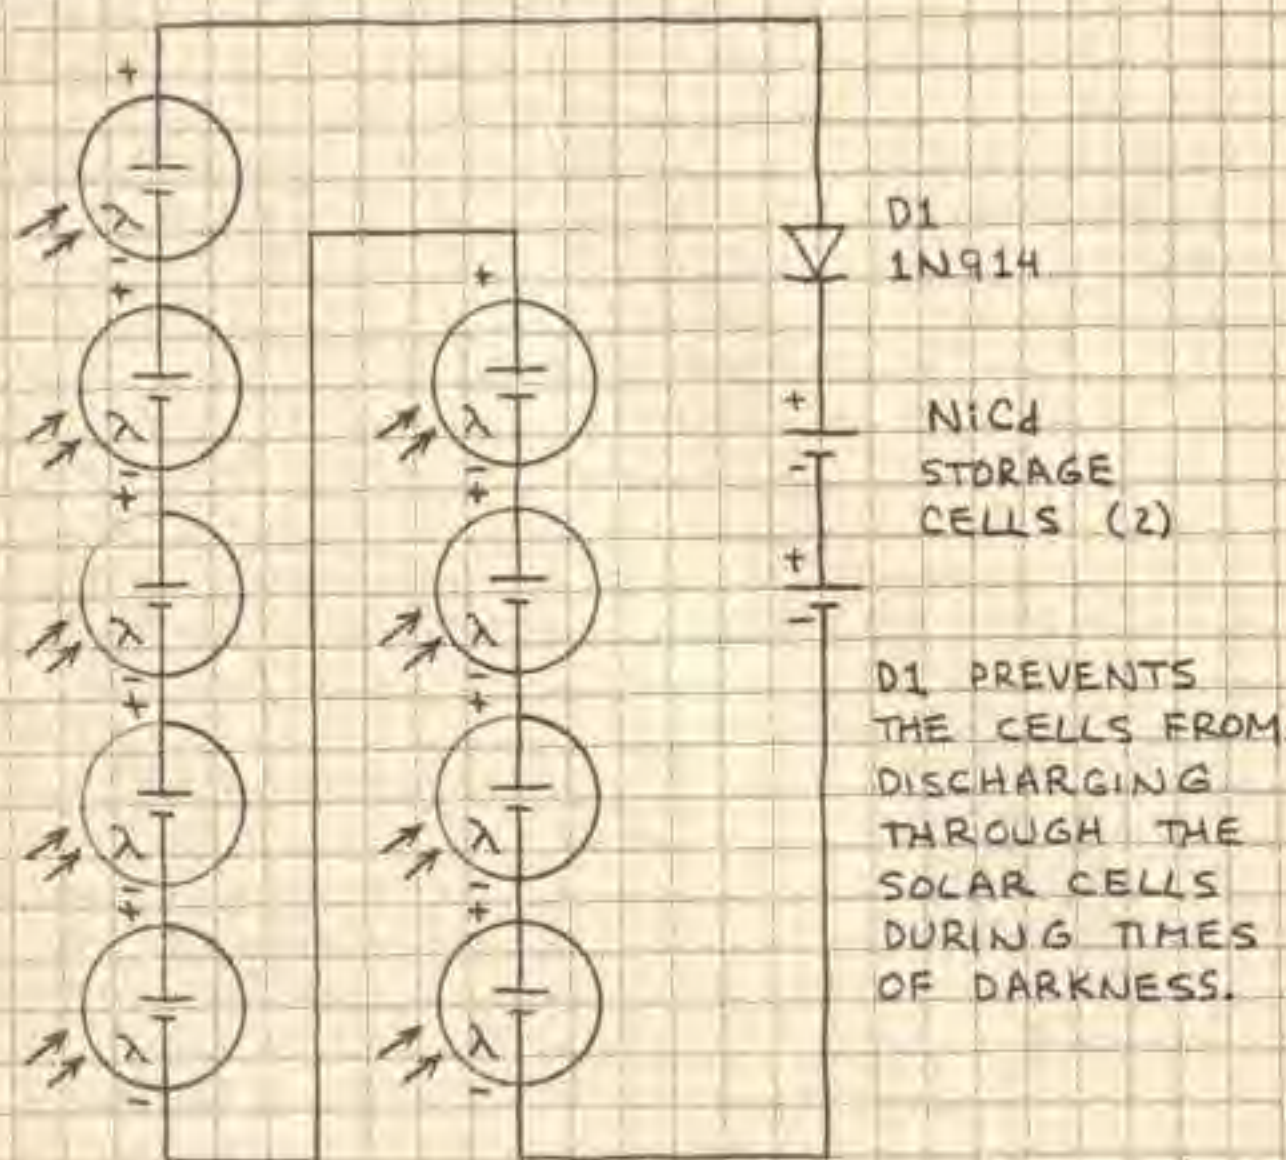 D1
1N914
NiCd
STORAGE
CELLS (2)
D1 PREVENTS
THE CELLS FROM
DISCHARGING
THROUGH THE
SOLAR CELLS
DURING TIMES
OF DARKNESS.
+
λ
-
+
λ
-
+
λ
-
+
λ
-
+
λ
-
+
λ
-
+
λ
-
+
λ
-
+
λ
-
+
-
+
-